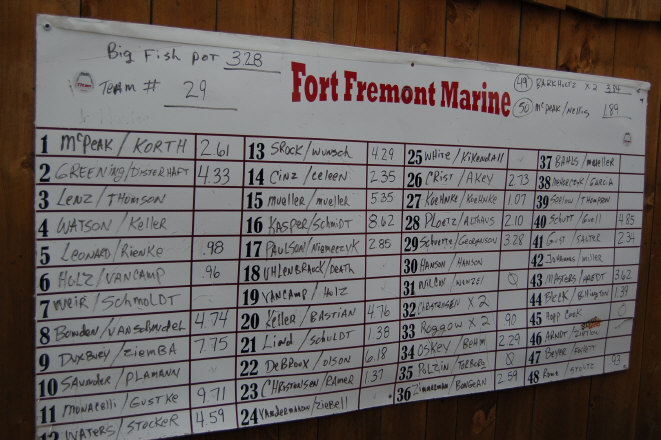 Big Fish Pot 328
Team # 29
Fort Fremont Marine
49 BARKHOLTZ X 2 3.84
50 McPEAK / 1.89
1 McPEAK / KORTH 2.61
2 GREENING / DISTERHAFT 4.33
3 LENZ / THOMSON
4 WATSON / Keller
5 LEONARD / RIENKE .98
6 HOLZ / VANCAMP .96
7 WEIR / SCHMOLDT
8 Bowden / 4.74
9 DUXBURY / ZIEMBA 7.75
10 SAUNDER / PLAMANN
11 MONARELLI / GUSTKE 9.71
12 WATERS / STOCKER 4.59
13 SROCK / WUNSCH 4.29
14 CINZ / CELEEN 2.35
15 mueller / mueller 5.35
16 KASPER / SCHMIDT 8.62
17 PAULSON / NIEMECZYK 2.85
18 UHLENBRAUCK / DEATH
19 VANCAMP / HOLZ
20 Keller / BASTIAN 4.76
21 LIND / SCHULDT 1.38
22 DeBROUX / OLSON 6.18
23 CHRISTENSEN / RAMER 1.37
24 VANDERMANNON / ZIEBELL
25 WHITE / KIKENDALL
26 CRIST / AKEY 2.73
27 KOEHNKE / KOEHNKE 1.07
28 PLOETZ / ALTHAUS 2.10
29 SCHUETTE / GEORGNSON 3.28
30 HANSON / HANSON
31 WILCOX / WENZEL 0
32 CHRISTENSEN X 2
33 ROGGOW X 2 .90
34 OSKEY / BEHM 2.29
35 POLZIN / TERBORG 0
36 ZIMMERMAN / BONGEAN 2.59
37 BAHLS / mueller
38 / GARCIA
39 / THOMPSON
40 SCHUTT / GUELL 4.85
41 GUST / SALTER 2.34
42 JOHANNES / MILLER
43 MASTERS / 3.62
44 BECK / BUHINGTON 1.39
45 HOPP COOK 0
46 ARNDT /
47 BEYER /
48 ROME / STOLTZ .93